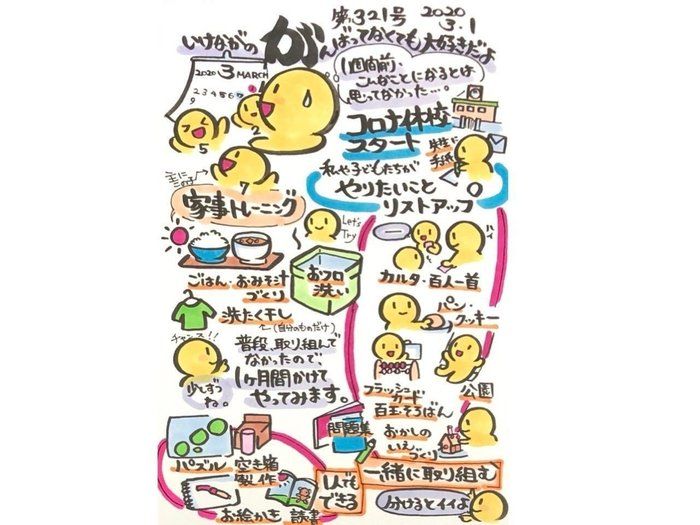 第321号 2020 3.1
いけながの がんばってなくても大好きだよ
2020 3 MARCH
2 3 4 5 6
9
1週間前、
こんなことになるとは
思ってなかった…。
コロナ休校
スタート
先生に
手紙
5
2
7
主に
この子
私や子どもたちが
やりたいこと
リストアップ
家事トレーニング
Let's
Try
ごはん・おみそ汁
づくり
おフロ
洗い
洗たく干し
(自分のものだけ)
チャンス!!
普段、取り組んで
なかったので、
1ヶ月間かけて
やってみます。
少しずつ
ね。
カルタ・百人一首
パン・
クッキー
フラッシュ
カード
百玉そろばん
公園
おかしの
いえ
づくり
問題集
一緒に取り組む
分けるとイイよ
パズル
空き箱
製作
1人でも
できる
お絵かき
読書